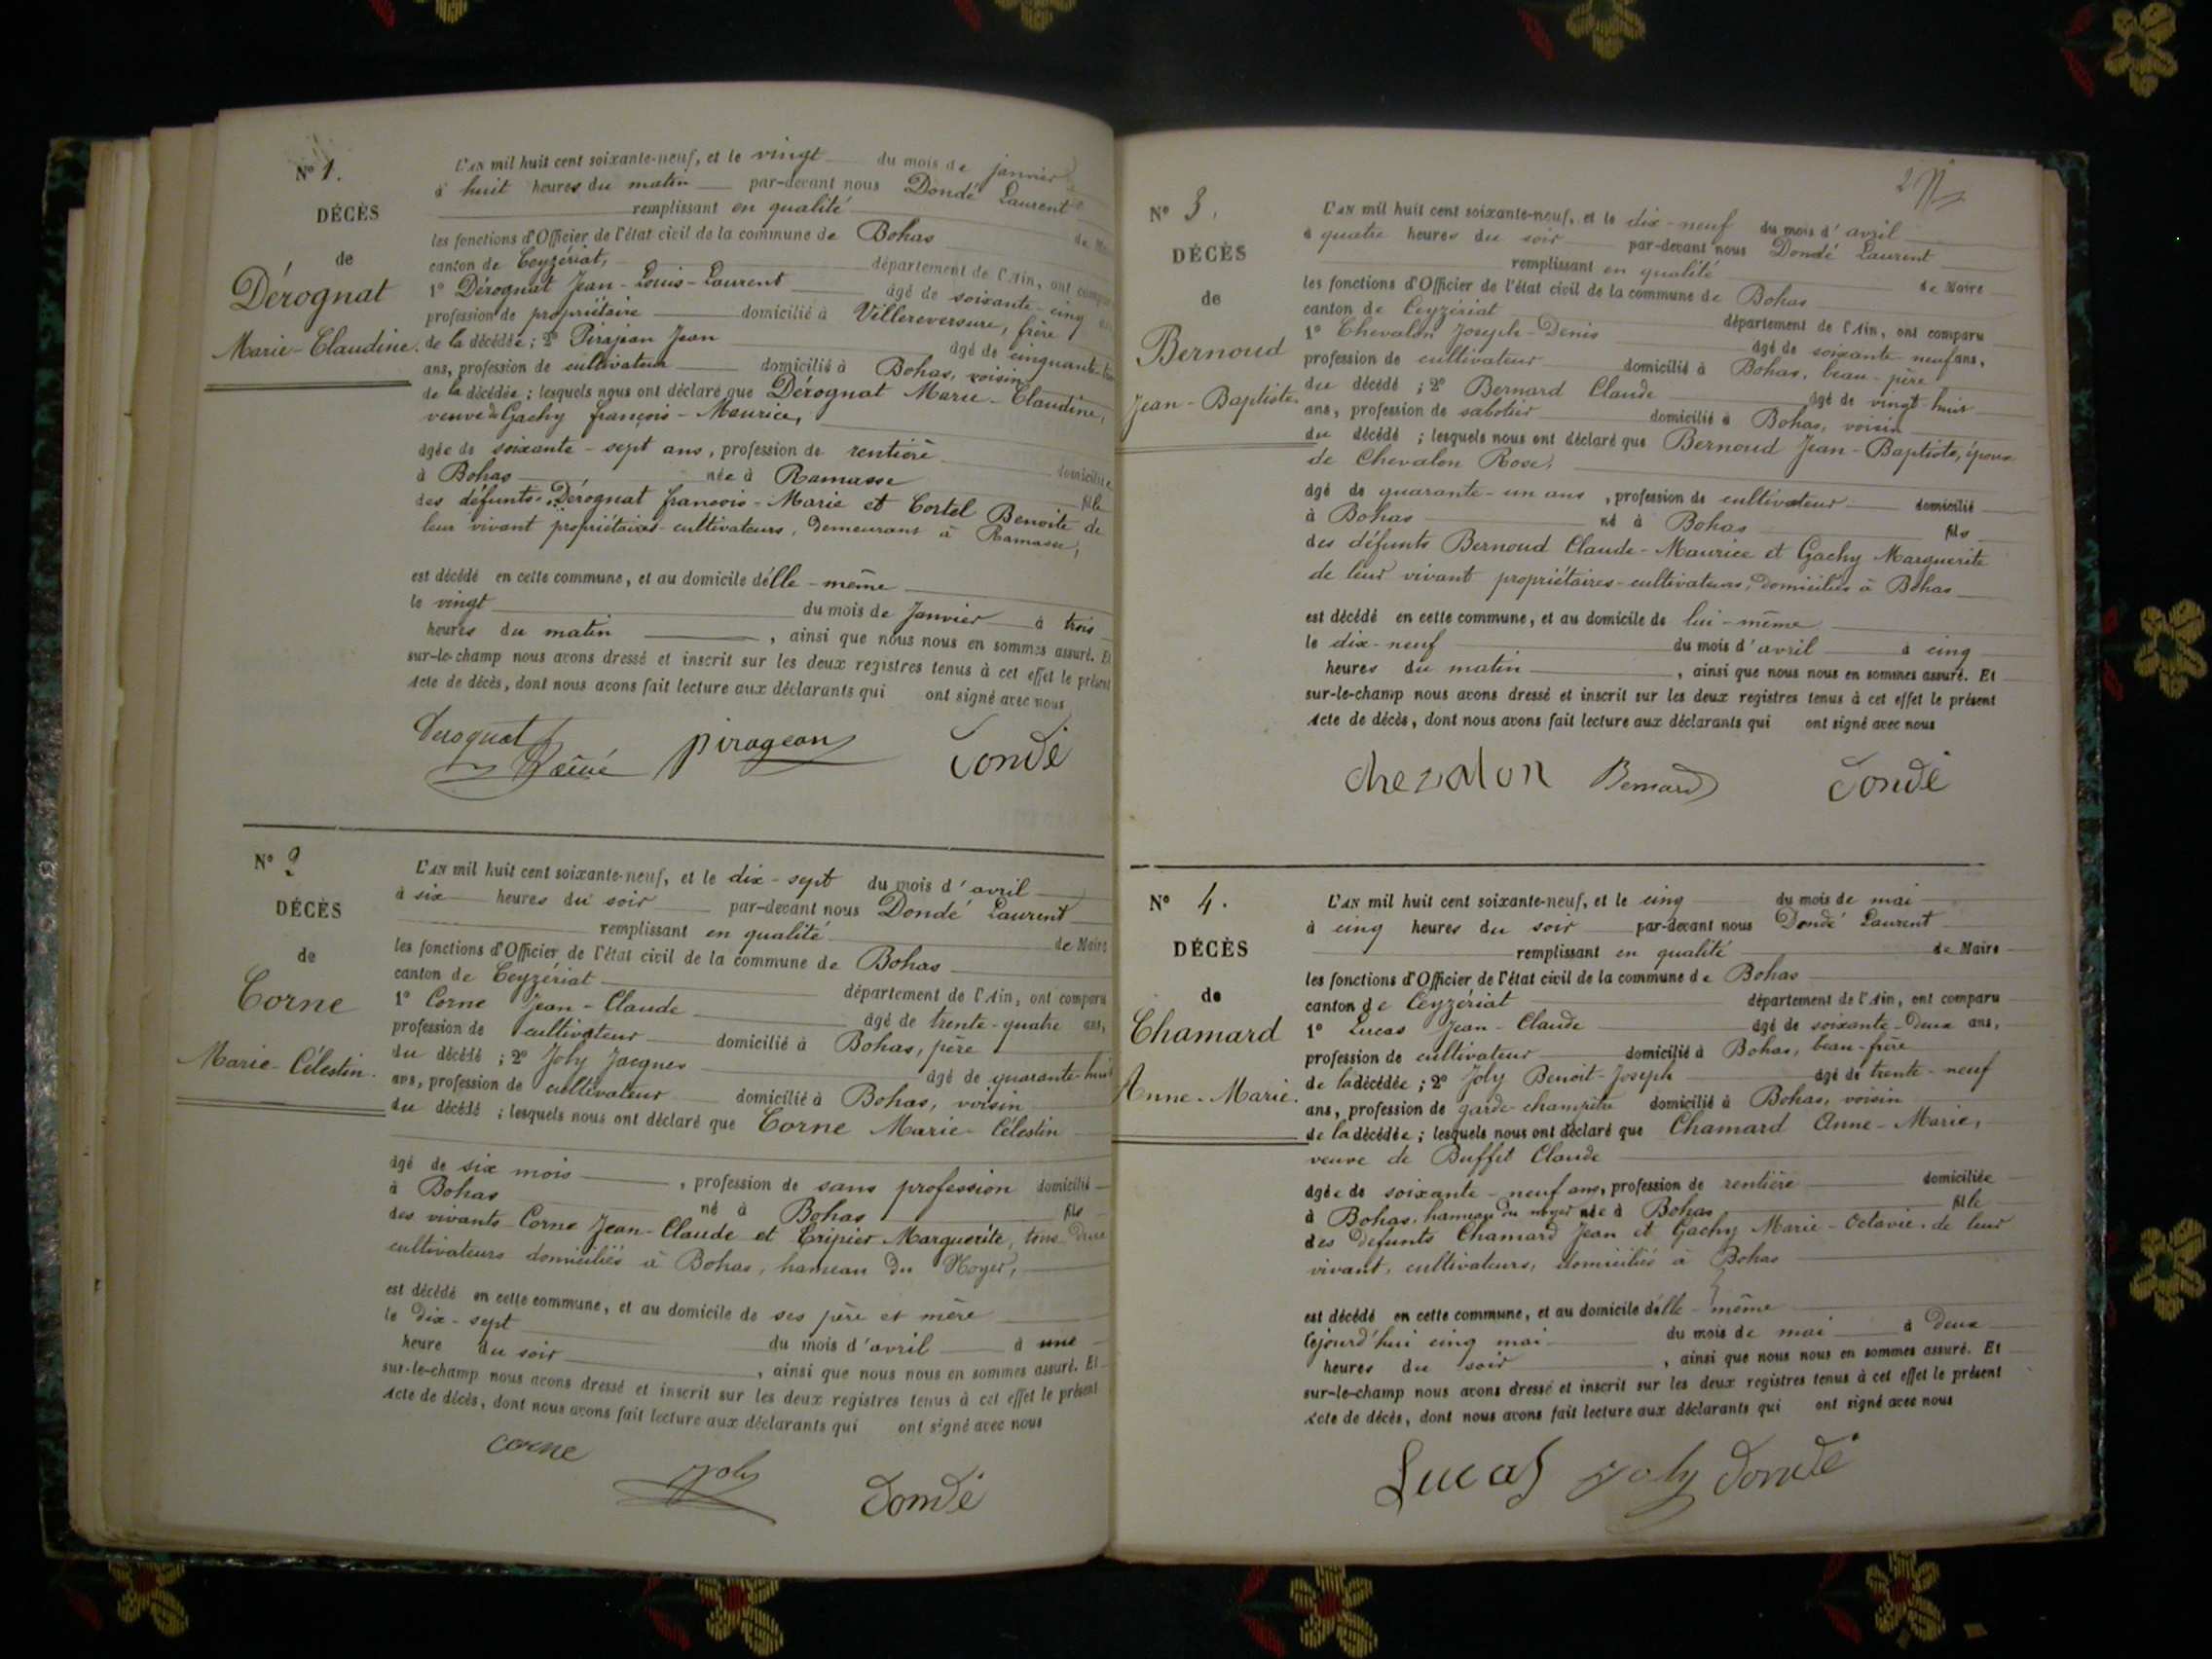 N° 1.
DÉCÈS
de
Dérognat
Marie-Claudine.
L'AN mil huit cent soixante-neuf, et le vingt du mois de janvier
à huit heures du matin par-devant nous Dondé Laurent
remplissant en qualité de
les fonctions d'Officier de l'état civil de la commune de Bohas
canton de Ceyzériat, département de l'Ain, ont
1° Dérognat Jean-Louis-Laurent âgé de soixante-cinq
profession de propriétaire domicilié à Villereversure, frère
de la décédée; 2° Pirajean Jean âgé de
ans, profession de cultivateur domicilié à Bohas, voisin
de la décédée; lesquels nous ont déclaré que Dérognat Marie-Claudine,
veuve de Gachy françois-Maurice,
âgée de soixante-sept ans, profession de rentière domiciliée
à Bohas née à Ramasse fille
des défunts Dérognat francois-Marie et Cortel Benoite de
leur vivant propriétaires-cultivateurs, demeurant à Ramasse,
est décédé en cette commune, et au domicile d'elle-même
le vingt du mois de Janvier à trois
heures du matin, ainsi que nous nous en sommes assuré. Et
sur-le-champ nous avons dressé et inscrit sur les deux registres tenus à cet effet le présent
Acte de décès, dont nous avons fait lecture aux déclarants qui ont signé avec nous
pirageon Dondé
N° 2
DÉCÈS
de
Corne
Marie-Célestin.
L'AN mil huit cent soixante-neuf, et le dix-sept du mois d'avril
à six heures du soir par-devant nous Dondé Laurent
remplissant en qualité de Maire
les fonctions d'Officier de l'état civil de la commune de Bohas
canton de Ceyzériat département de l'Ain, ont comparu
1° Corne Jean-Claude âgé de trente-quatre ans,
profession de cultivateur domicilié à Bohas, père
du décédé; 2° Joly Jacques âgé de quarante-huit
ans, profession de cultivateur domicilié à Bohas, voisin
du décédé; lesquels nous ont déclaré que Corne Marie-Célestin
âgé de six mois, profession de sans profession domicilié
à Bohas né à Bohas fils
des vivants Corne Jean-Claude et Tripier Marguerite, tous deux
cultivateurs domiciliés à Bohas, hameau du Noyer,
est décédé en cette commune, et au domicile de ses père et mère
le dix-sept du mois d'avril à une
heure du soir, ainsi que nous nous en sommes assuré. Et
sur-le-champ nous avons dressé et inscrit sur les deux registres tenus à cet effet le présent
Acte de décès, dont nous avons fait lecture aux déclarants qui ont signé avec nous
corne
Joly Dondé
2
N° 3.
DÉCÈS
de
Bernoud
Jean-Baptiste.
L'AN mil huit cent soixante-neuf, et le dix-neuf du mois d'avril
à quatre heures du soir par-devant nous Dondé Laurent
remplissant en qualité de Maire
les fonctions d'Officier de l'état civil de la commune de Bohas
canton de Ceyzériat département de l'Ain, ont comparu
1° Chevalon Joseph-Denis âgé de soixante-neuf ans,
profession de cultivateur domicilié à Bohas, beau-père
du décédé; 2° Bernard Claude âgé de vingt-huit
ans, profession de sabotier domicilié à Bohas, voisin
du décédé; lesquels nous ont déclaré que Bernoud Jean-Baptiste, époux
de Chevalon Rose,
âgé de quarante-un ans, profession de cultivateur domicilié
à Bohas né à Bohas fils
des défunts Bernoud Claude-Maurice et Gachy Marguerite
de leur vivant propriétaires-cultivateurs, domiciliés à Bohas
est décédé en cette commune, et au domicile de lui-même
le dix-neuf du mois d'avril à cinq
heures du matin, ainsi que nous nous en sommes assuré. Et
sur-le-champ nous avons dressé et inscrit sur les deux registres tenus à cet effet le présent
Acte de décès, dont nous avons fait lecture aux déclarants qui ont signé avec nous
chevalon Bernard Dondé
N° 4.
DÉCÈS
de
Chamard
Anne-Marie.
L'AN mil huit cent soixante-neuf, et le cinq du mois de mai
à cinq heures du soir par-devant nous Dondé Laurent
remplissant en qualité de Maire
les fonctions d'Officier de l'état civil de la commune de Bohas
canton de Ceyzériat département de l'Ain, ont comparu
1° Lucas Jean-Claude âgé de soixante-deux ans,
profession de cultivateur domicilié à Bohas, beau-frère
de la décédée; 2° Joly Benoit-Joseph âgé de trente-neuf
ans, profession de garde-champêtre domicilié à Bohas, voisin
de la décédée; lesquels nous ont déclaré que Chamard Anne-Marie,
veuve de Buffet Claude
âgée de soixante-neuf ans, profession de rentière domiciliée
à Bohas, hameau du noyer née à Bohas fille
des défunts Chamard Jean et Gachy Marie-Octavie. de leur
vivant, cultivateurs, domiciliés à Bohas
est décédé en cette commune, et au domicile d'elle-même
Cejourd'hui cinq mai du mois de mai à deux
heures du soir, ainsi que nous nous en sommes assuré. Et
sur-le-champ nous avons dressé et inscrit sur les deux registres tenus à cet effet le présent
Acte de décès, dont nous avons fait lecture aux déclarants qui ont signé avec nous
Lucas Joly Dondé